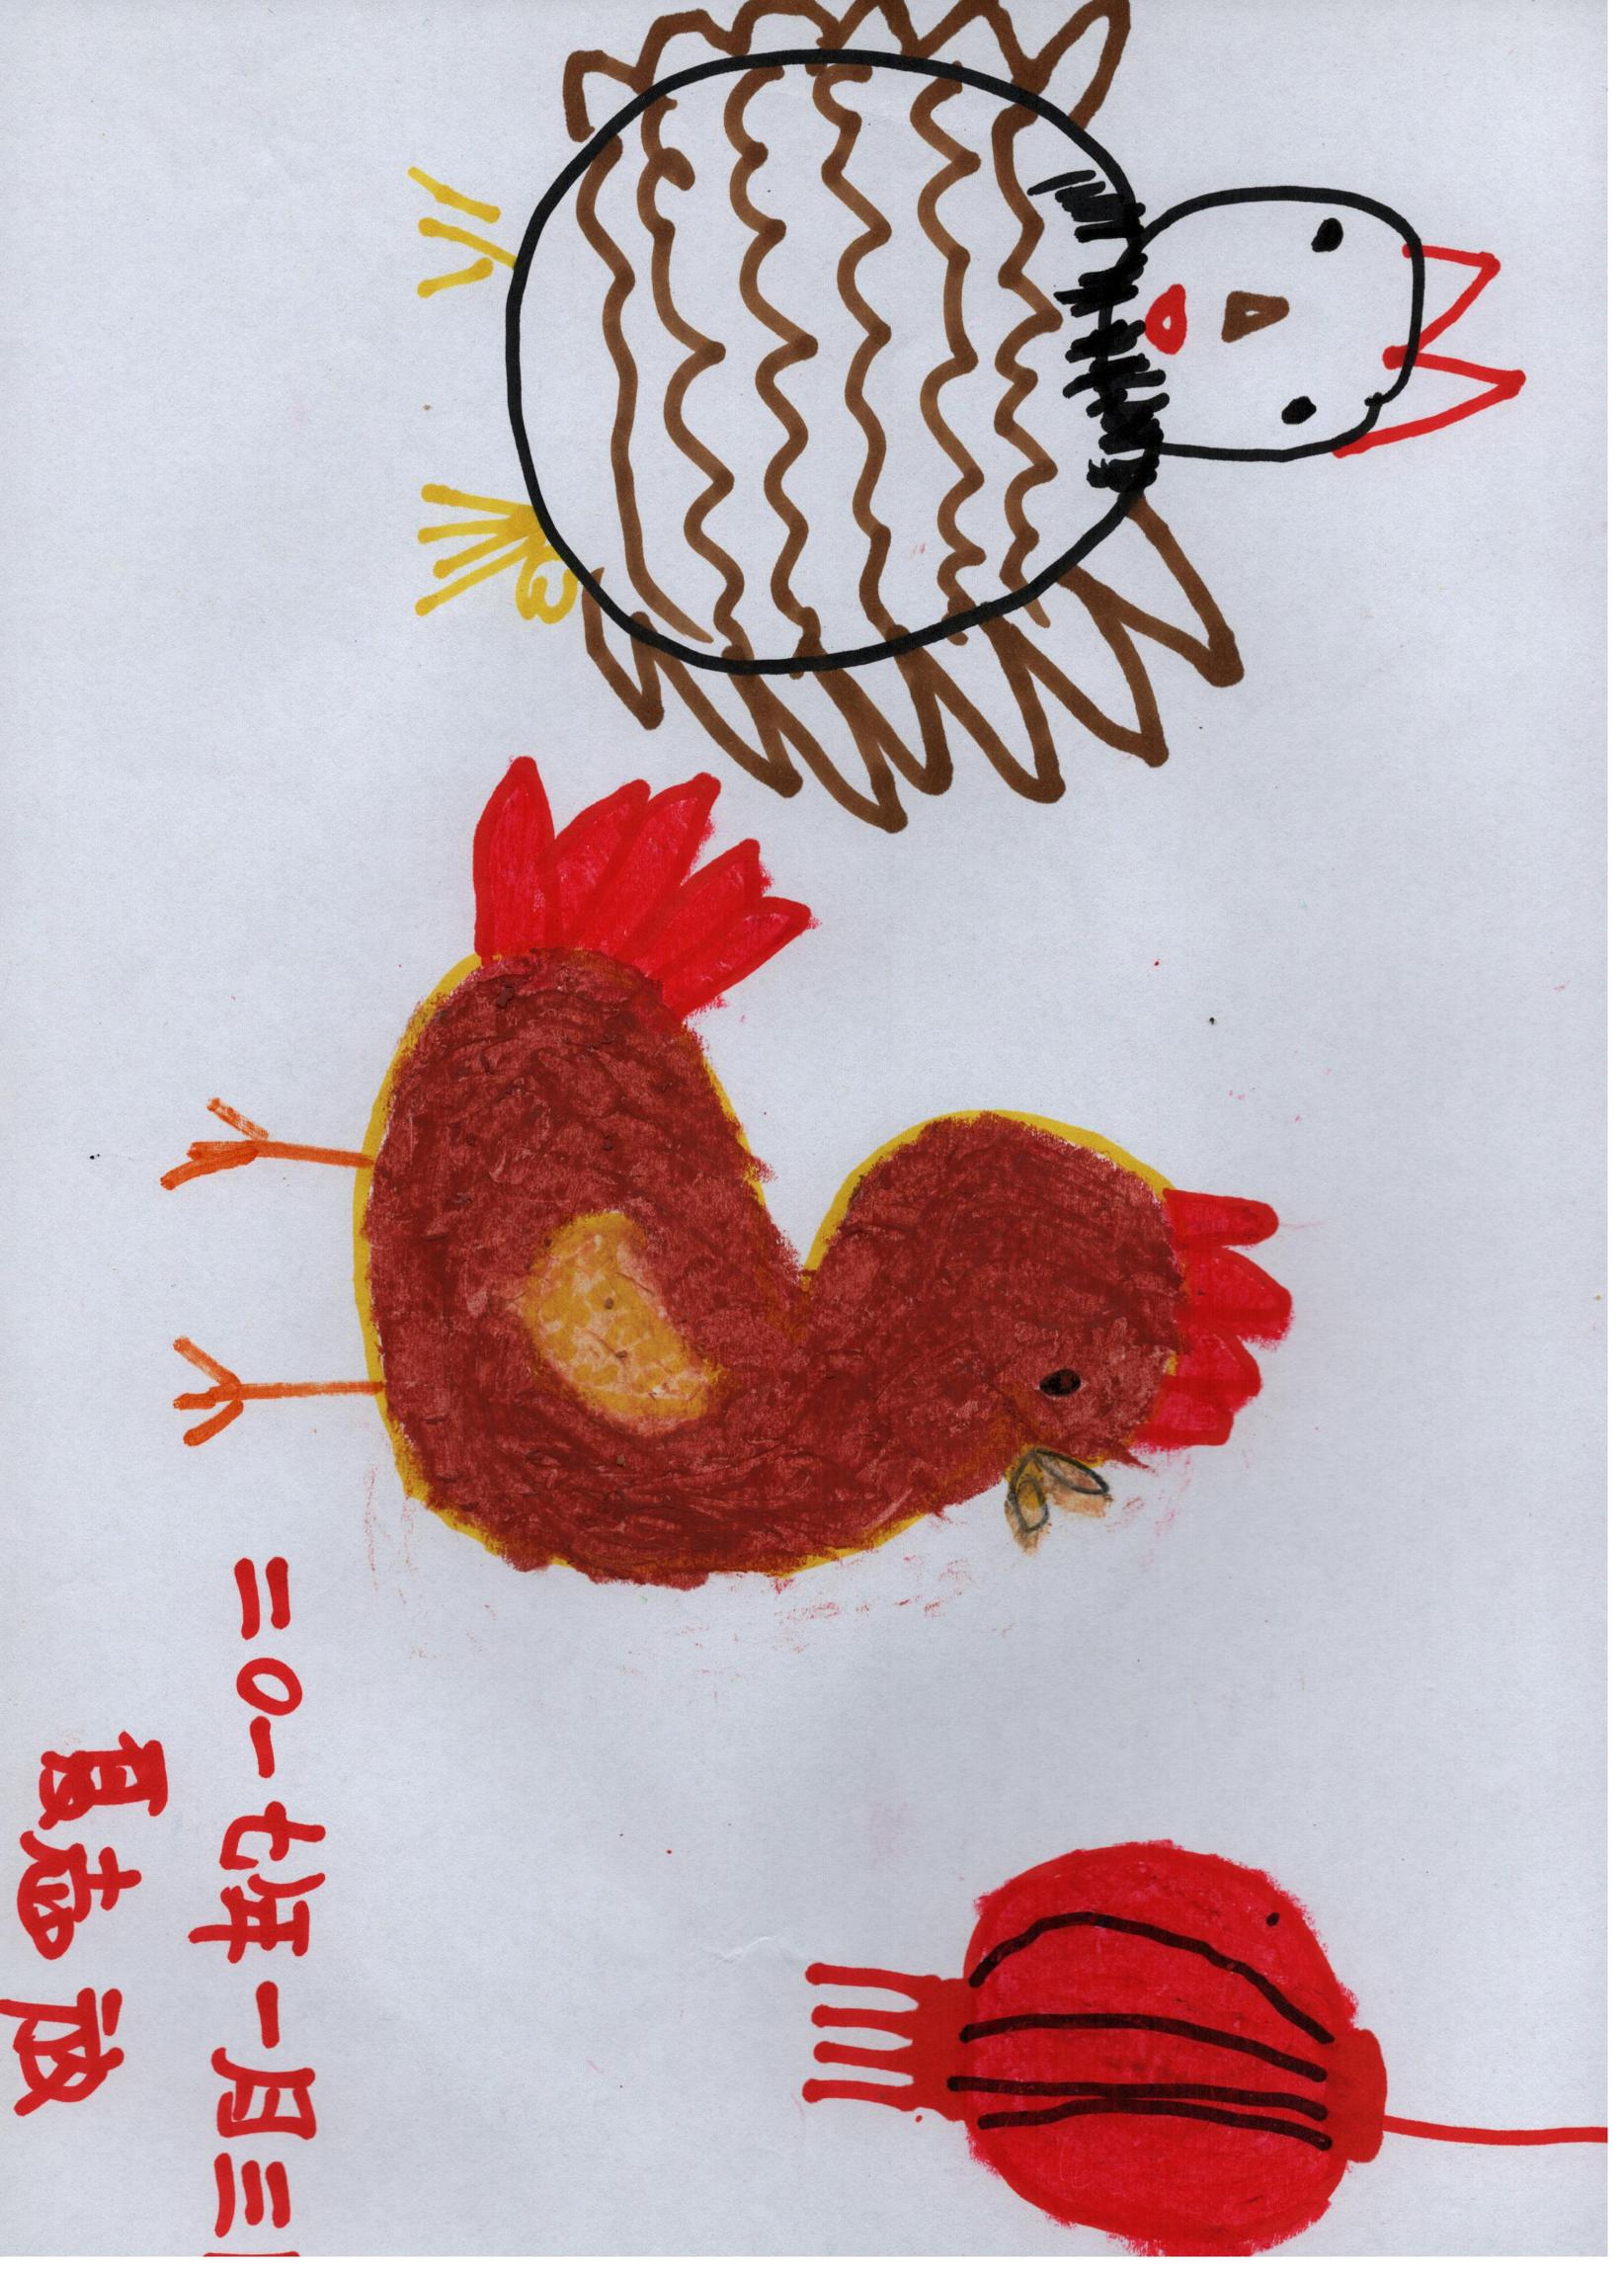 二〇一七年一月三
夏志